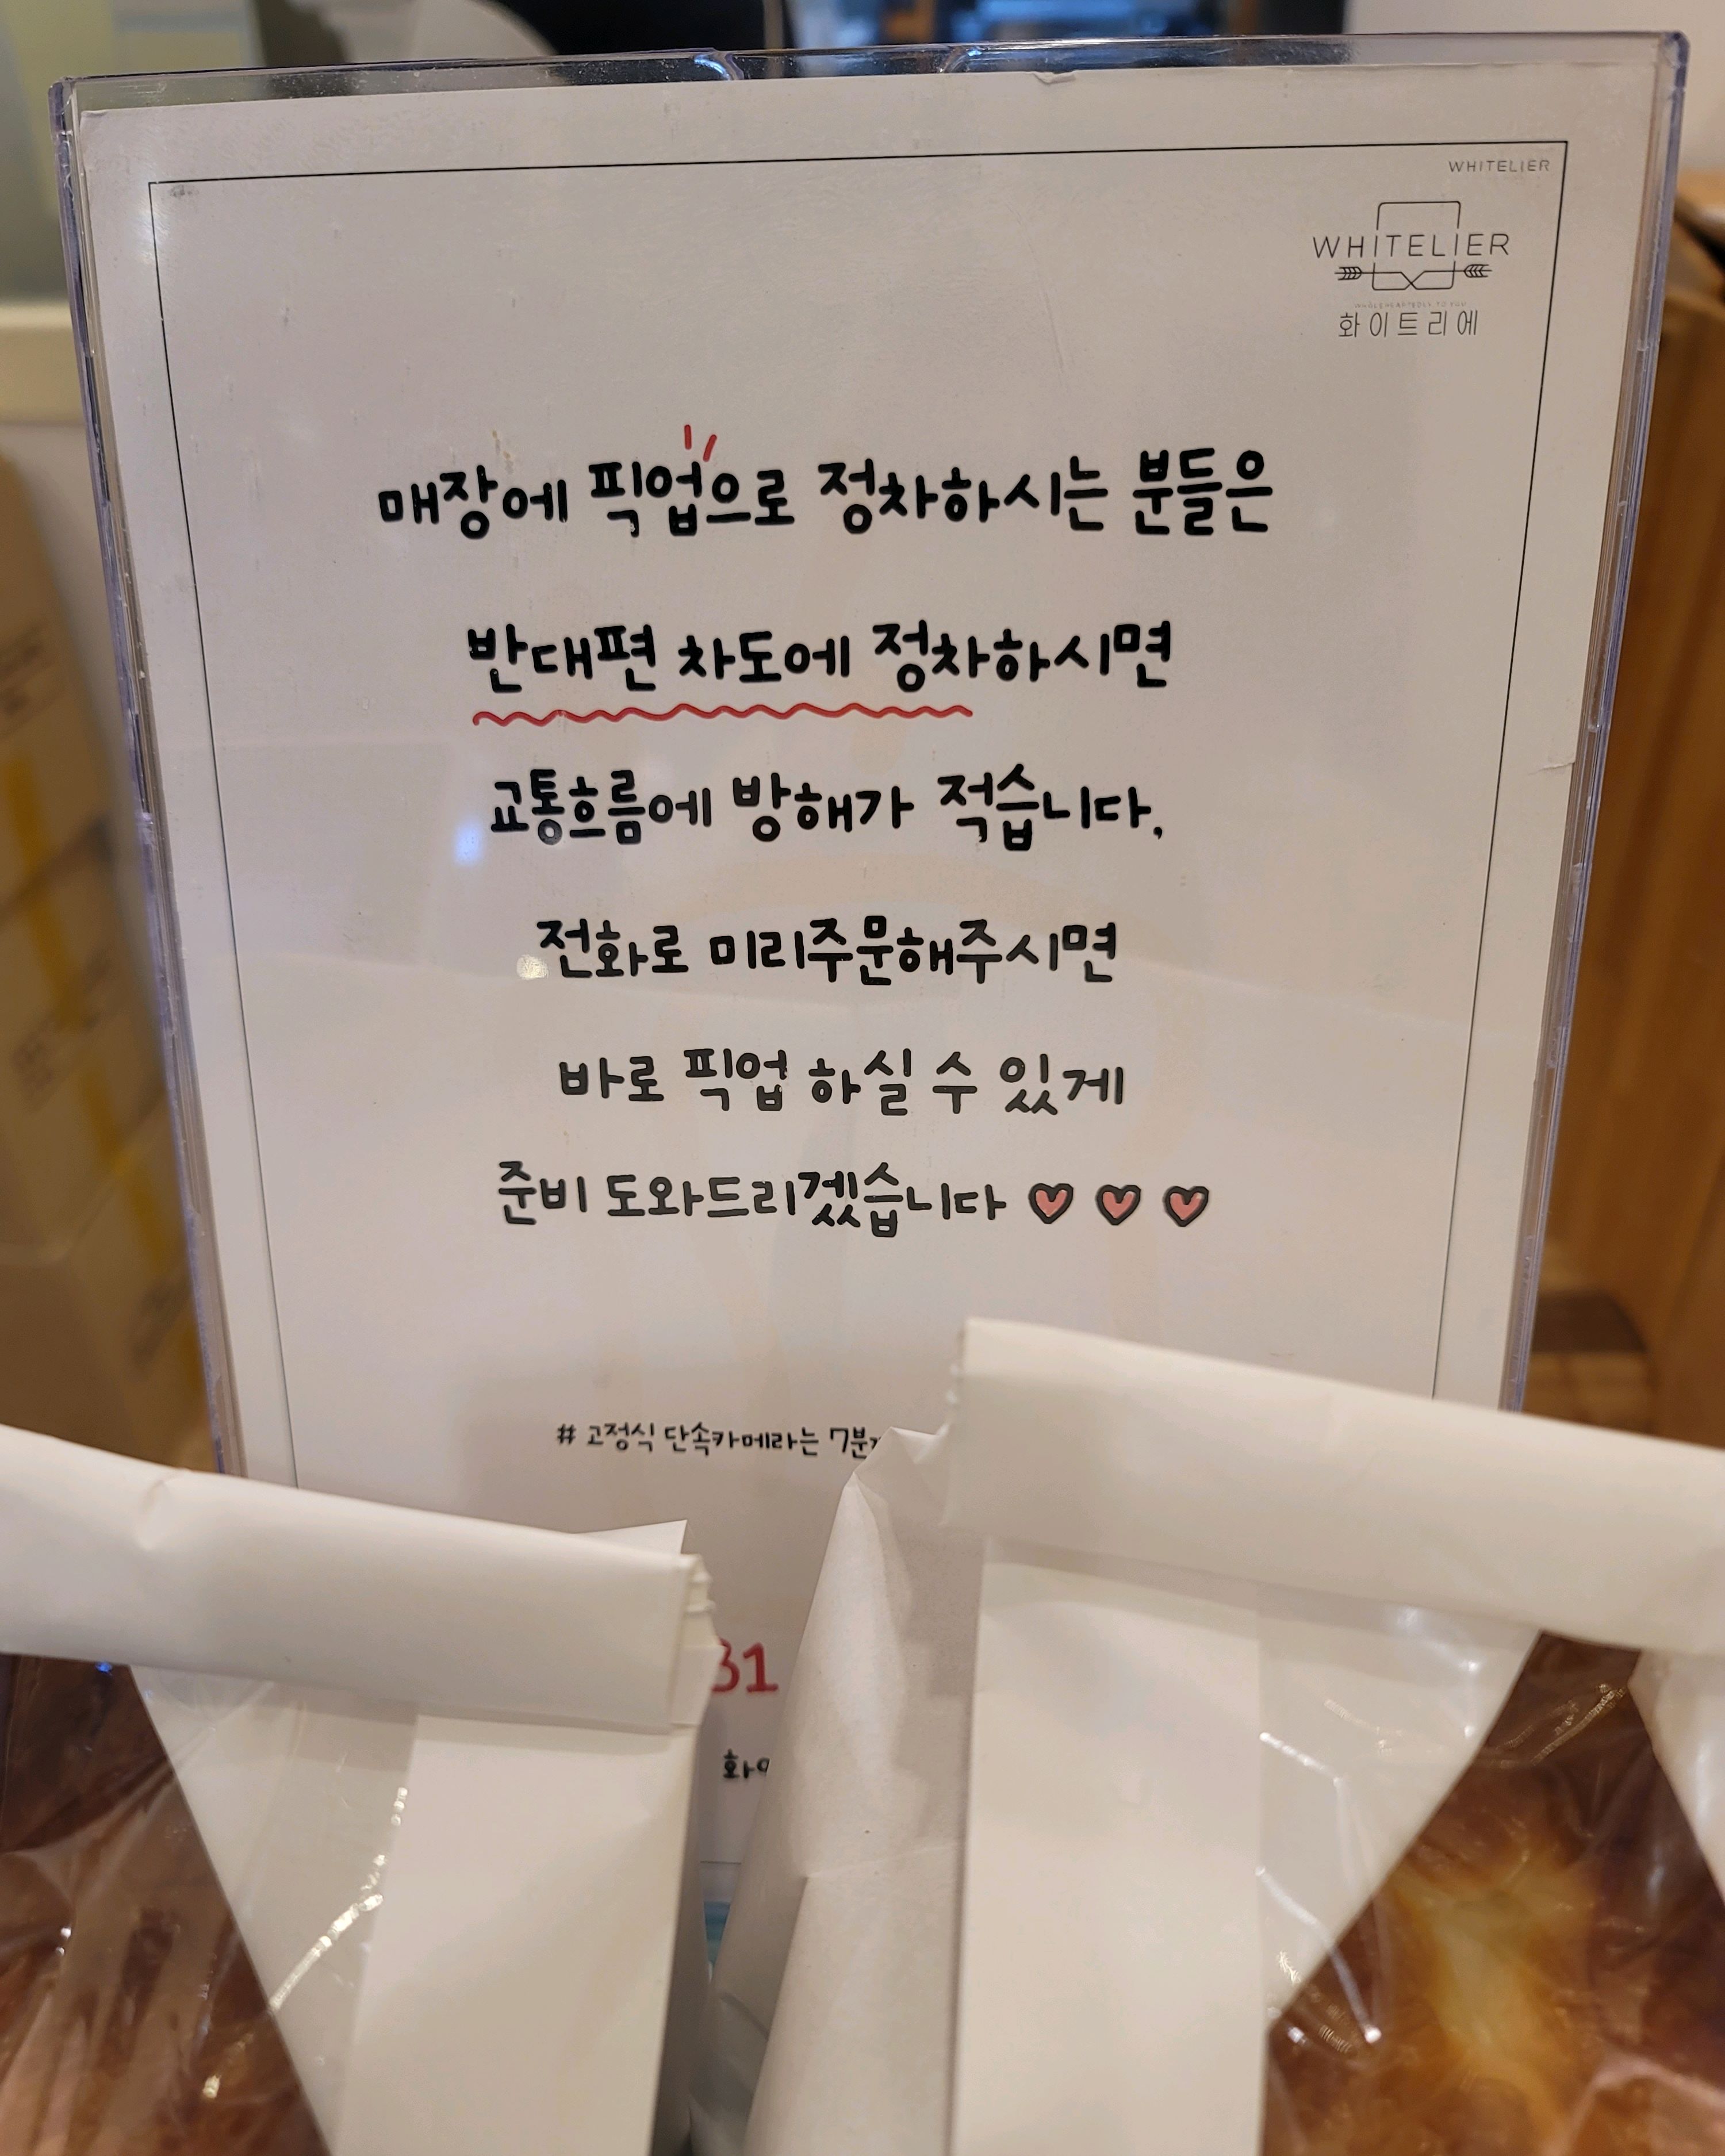 WHITELIER
WHITELIER
WHOLEHEARTEDLY TO YOU
화이트리에
매장에 픽업으로 정차하시는 분들은
반대편 차도에 정차하시면
교통흐름에 방해가 적습니다,
전화로 미리주문해주시면
바로 픽업 하실 수 있게
준비 도와드리겠습니다 ♡ ♡ ♡
# 고정식 단속카메라는 7분
31